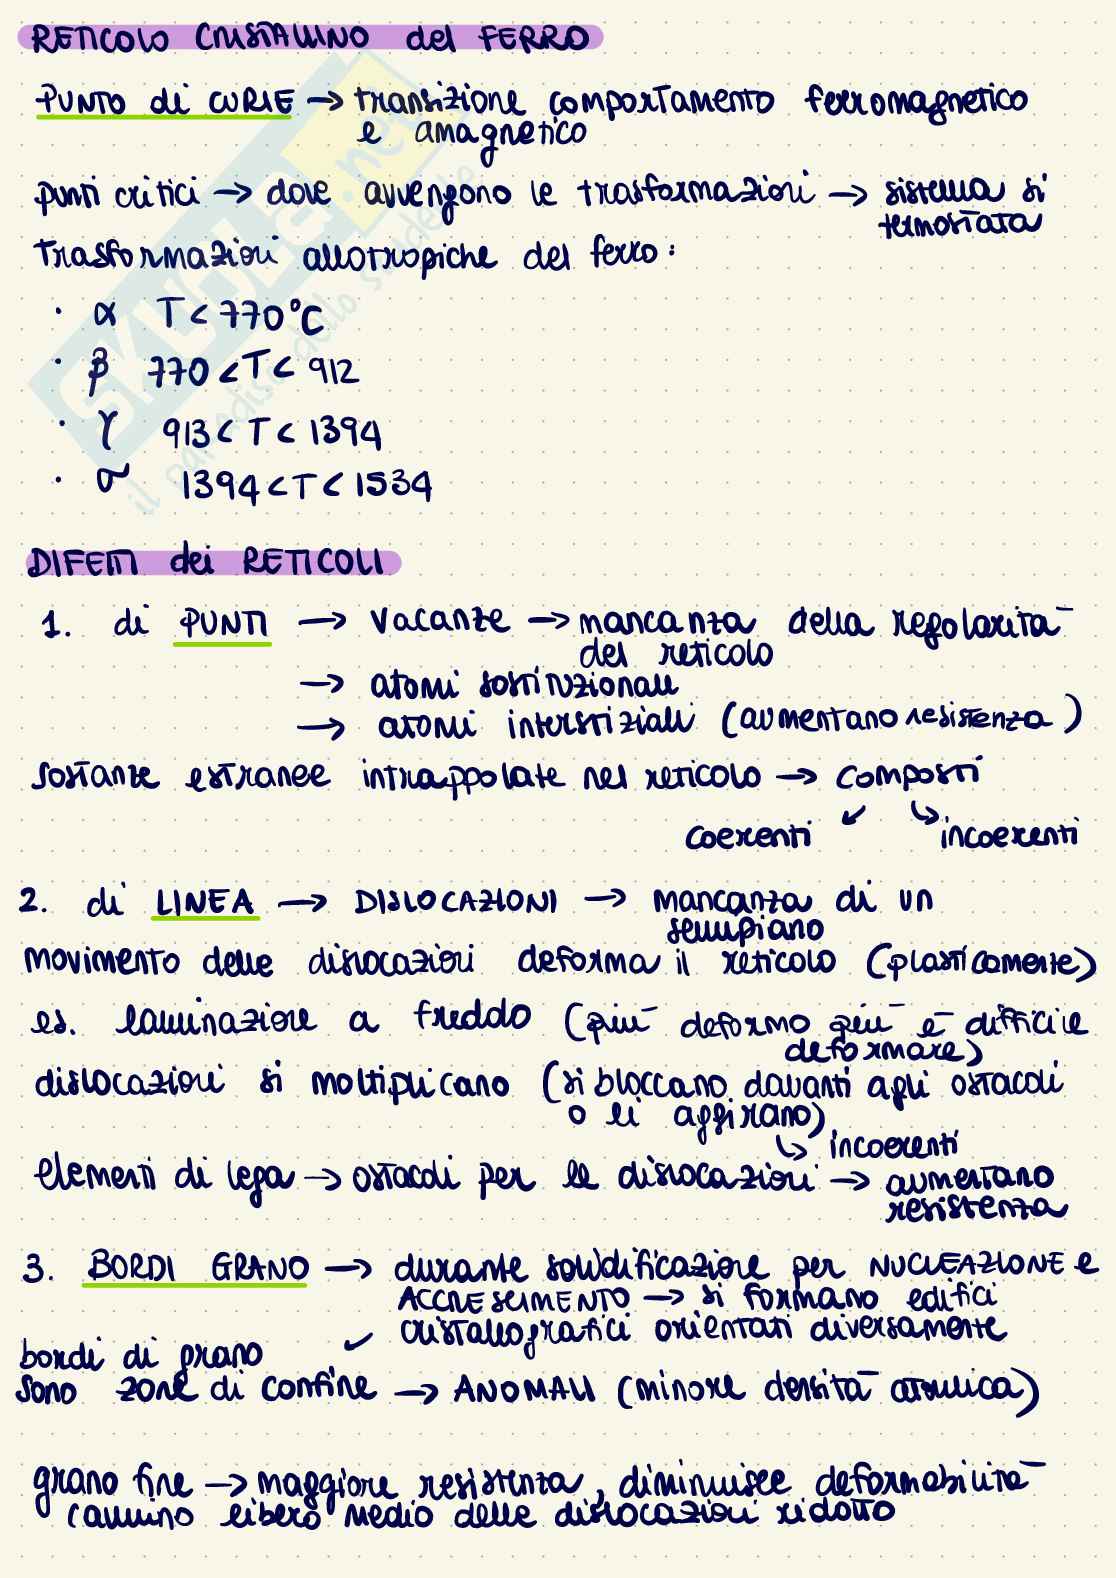 RETICOLO CRISTALLINO del FERRO
PUNTO di CURIE → transizione comportamento ferromagnetico
e amagnetico
punti critici → dove avvengono le trasformazioni → sistema si
termostata
Trasformazioni allotropiche del ferro:
· α T < 770°C
· β 770 < T < 912
· γ 913 < T < 1394
· σ 1394 < T < 1534
DIFETTI dei RETICOLI
1. di PUNTI → vacanze → mancanza della regolarità
del reticolo
→ atomi sostituzionali
→ atomi interstiziali (aumentano resistenza)
Sostanze estranee intrappolate nel reticolo → composti
↙ ↳
coerenti incoerenti
2. di LINEA → DISLOCAZIONI → mancanza di un
semipiano
movimento delle dislocazioni deforma il reticolo (plasticamente)
es. laminazione a freddo (più deformo più è difficile
deformare)
dislocazioni si moltiplicano (si bloccano davanti agli ostacoli
o li aggirano)
↳ incoerenti
elementi di lega → ostacoli per le dislocazioni → aumentano
resistenza
3. BORDI GRANO → durante solidificazione per NUCLEAZIONE e
ACCRESCIMENTO → si formano edifici
↙ cristallografici orientati diversamente
bordi di grano
sono zone di confine → ANOMALI (minore densità atomica)
grano fine → maggiore resistenza, diminuisce deformabilità
cammino libero medio delle dislocazioni ridotto
SKUOLA.net
il paradiso dello studente